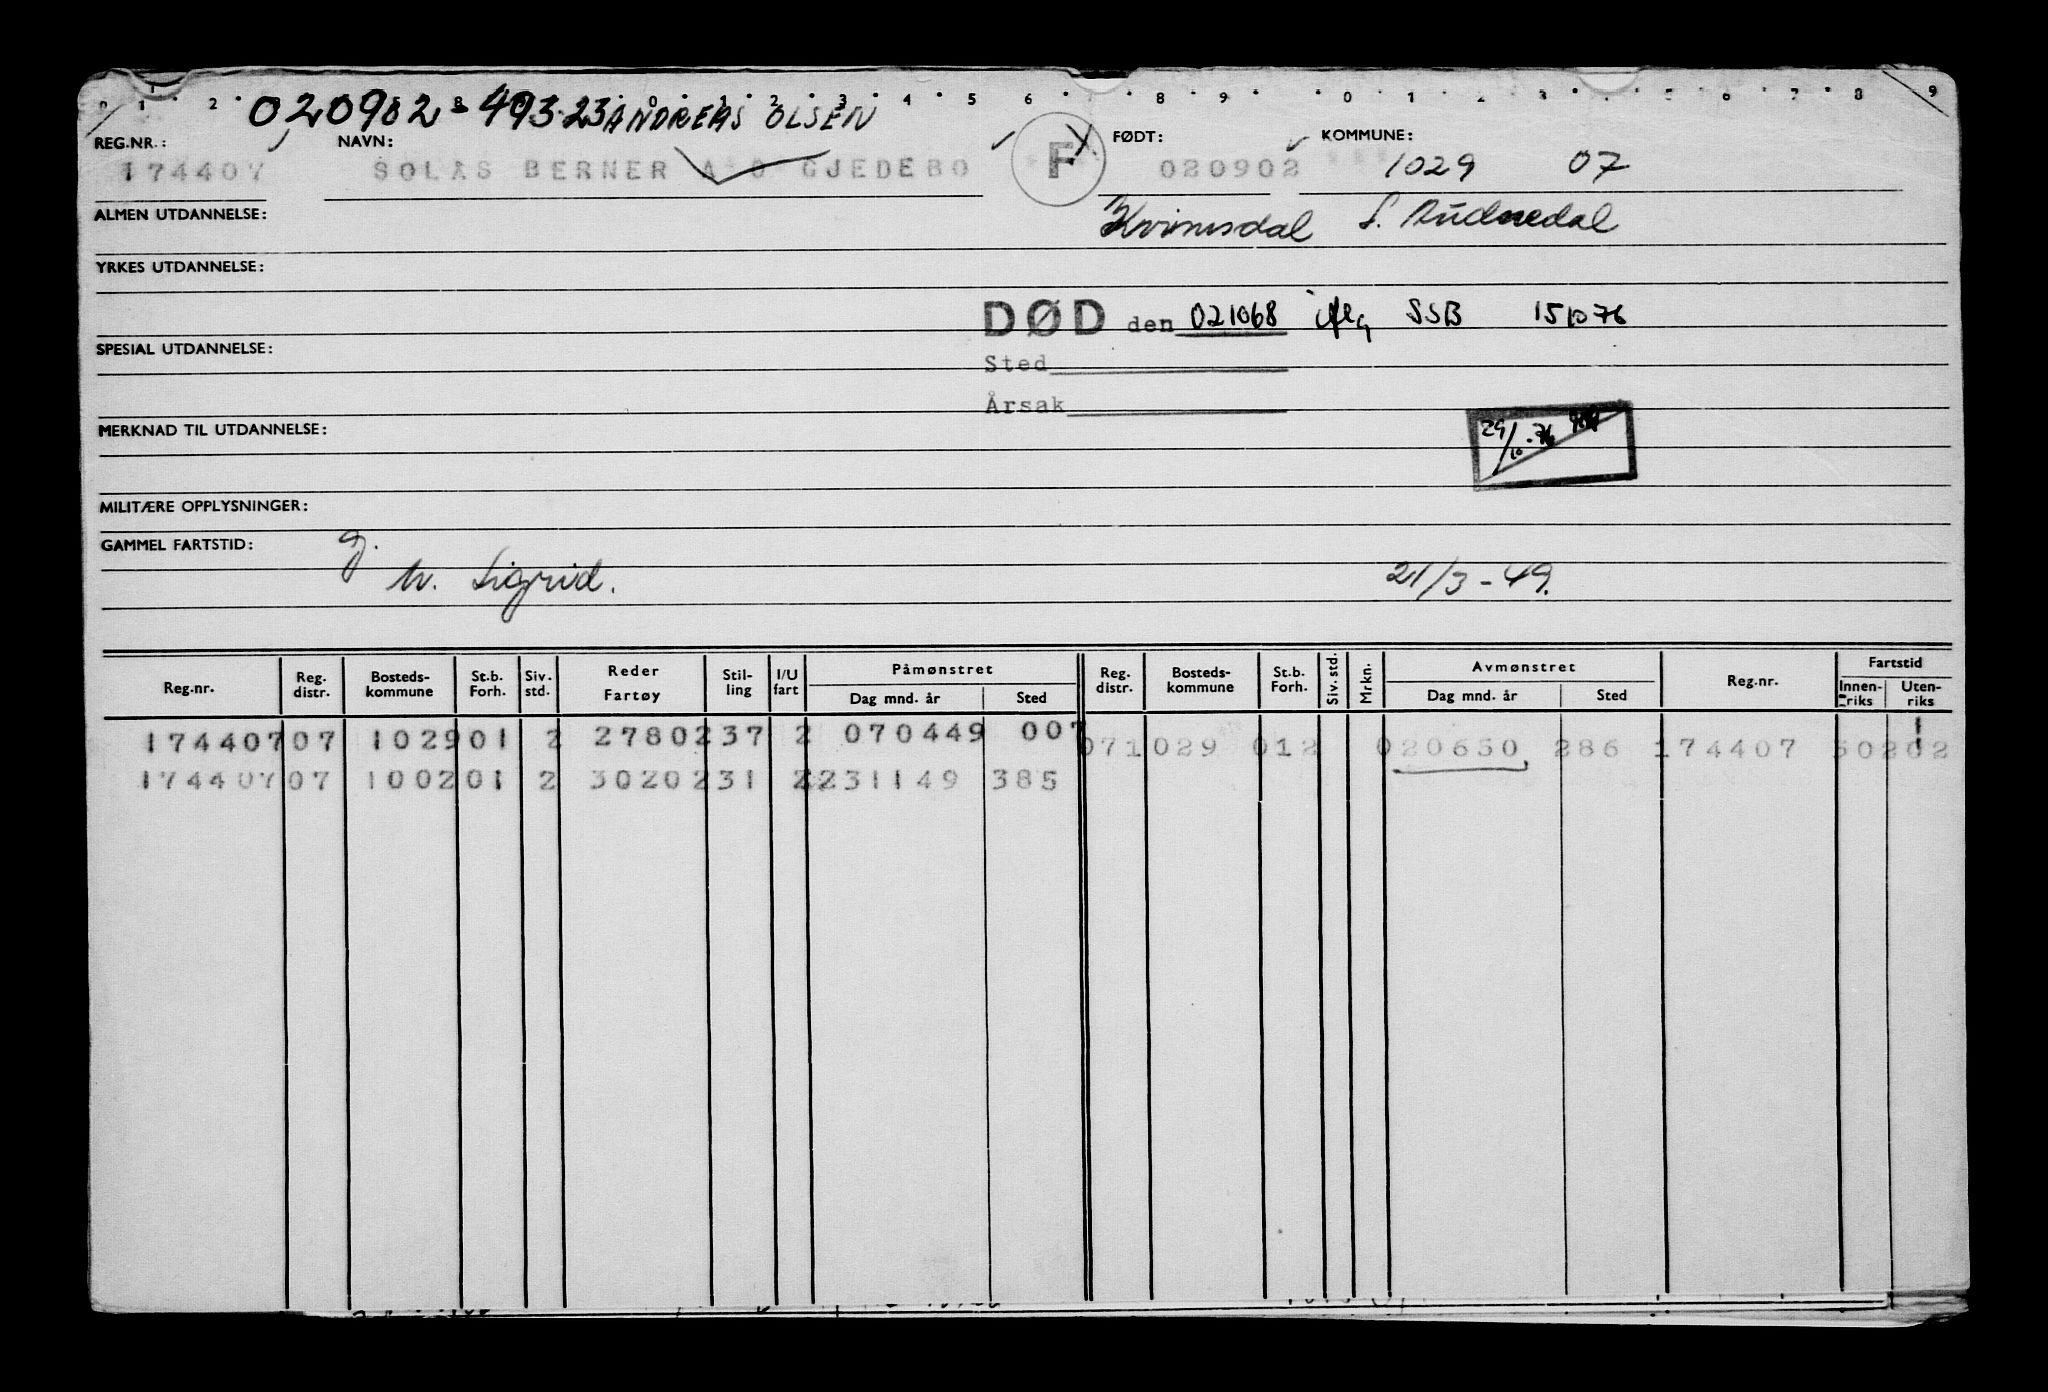 020902-493.23 ANDREAS OLSEN
REG.NR.: NAVN: FØDT: KOMMUNE:
174407 SOLAS BERNER A O GJEDEBO F 020902 1029 07
ALMEN UTDANNELSE: Kvinesdal S. Audnedal
YRKES UTDANNELSE:
DØD den 021068 iflg SSB 151076
SPESIAL UTDANNELSE:
Sted
Årsak
MERKNAD TIL UTDANNELSE:
29/10-76
MILITÆRE OPPLYSNINGER:
GAMMEL FARTSTID:
M. Sigrid. 21/3-49.
Reg.nr. Reg. distr. Bosteds-kommune St.b. Forh. Siv. std. Reder Fartøy Stil-ling I/U fart Påmønstret Dag mnd. år Sted Reg. distr. Bosteds-kommune St.b. Forh. Siv. std. Mrkn. Avmønstret Dag mnd. år Sted Reg.nr. Fartstid Innen-riks Uten-riks
174407 07 1029 01 2 2780237 2 070449 007 07 1029 012 020650 286 174407 50202
174407 07 1002 01 2 3020231 2 231149 385